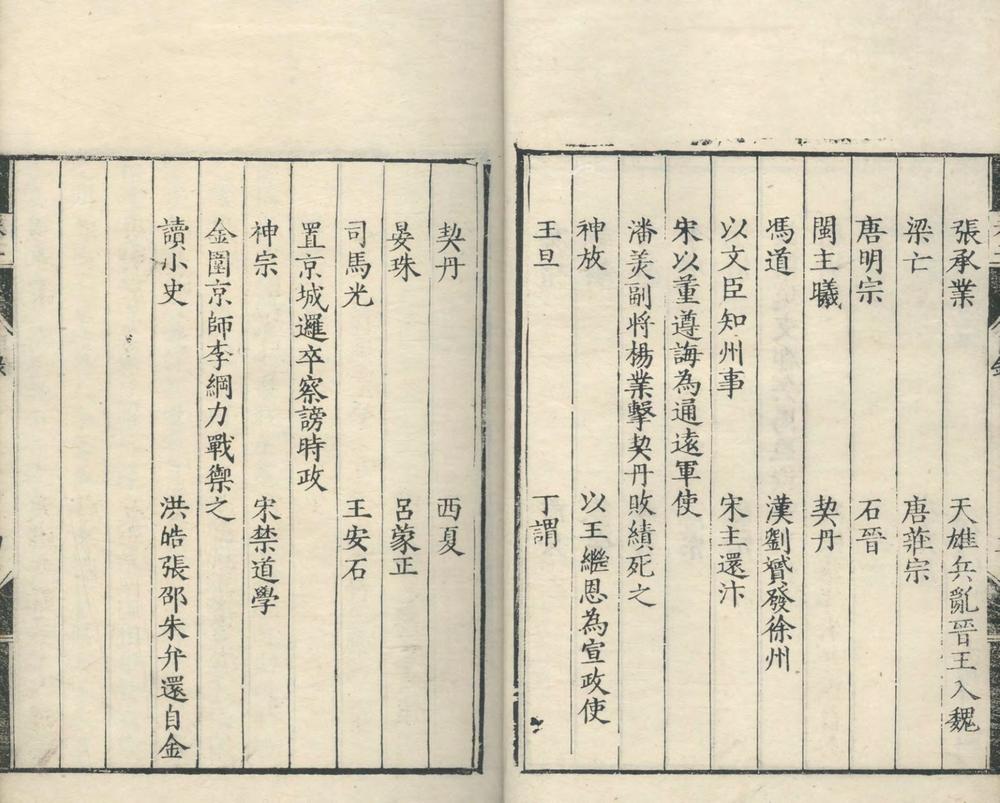 張承業 天雄兵亂晉王入魏
梁亡 唐莊宗
唐明宗 石晉
閩主曦 契丹
馮道 漢劉贇發徐州
以文臣知州事 宋主還汴
宋以董遵誨為通遠軍使
潘美副將楊業擊契丹敗績死之
神放 以王繼恩為宣政使
王旦 丁謂
契丹 西夏
晏珠 呂蒙正
司馬光 王安石
置京城邏卒察謗時政
神宗 宋禁道學
金圍京師李綱力戰禦之
讀小史 洪皓張邵朱弁還自金